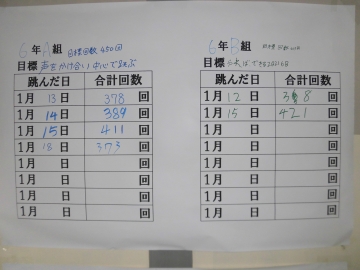 6年A組 目標回数 450回
目標 声をかけ合い中心で跳ぶ
跳んだ日 合計回数
1月 13日 378 回
1月 14日 389 回
1月 15日 411 回
1月 18日 373 回
1月 日 回
1月 日 回
1月 日 回
1月 日 回
6年B組 目標回数
目標
跳んだ日 合計回数
1月 12日 398 回
1月 15日 421 回
1月 日 回
1月 日 回
1月 日 回
1月 日 回
1月 日 回
1月 日 回